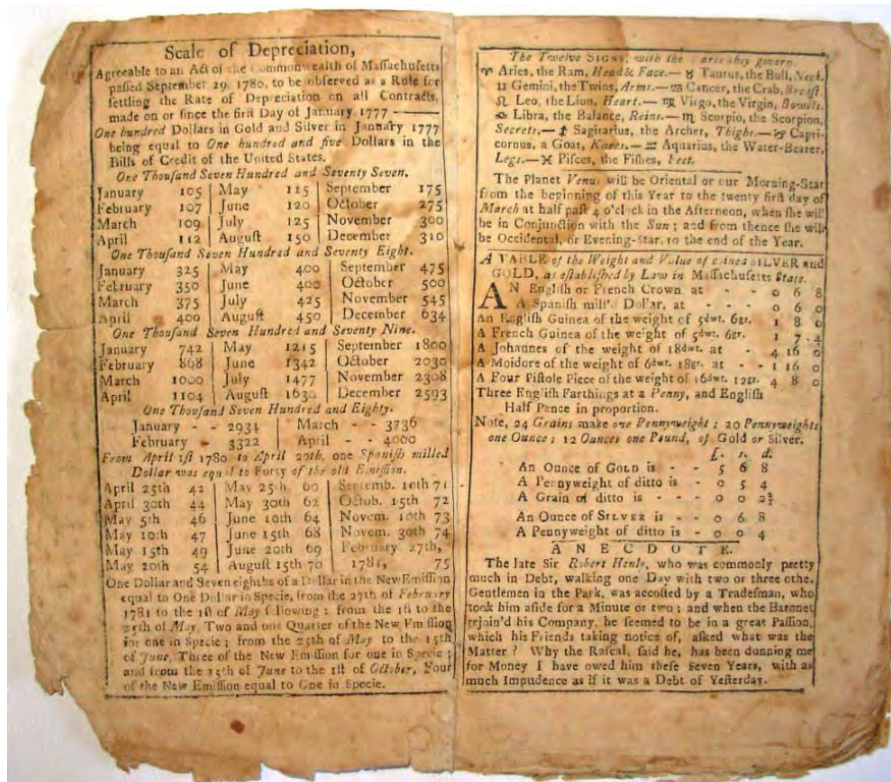 Scale of Depreciation,
Agreeable to an Act of the Commonwealth of Maſſachuſetts
paſſed September 29. 1780, to be obſerved as a Rule for
ſettling the Rate of Depreciation on all Contracts,
made on or ſince the firſt Day of January 1777
One hundred Dollars in Gold and Silver in January 1777
being equal to One hundred and five Dollars in the
Bills of Credit of the United States.
One Thouſand Seven Hundred and Seventy Seven.
January 105 May 115 September 175
February 107 June 120 October 275
March 109 July 125 November 300
April 112 Auguſt 150 December 310
One Thouſand Seven Hundred and Seventy Eight.
January 325 May 400 September 475
February 350 June 400 October 500
March 375 July 425 November 545
April 400 Auguſt 450 December 634
One Thouſand Seven Hundred and Seventy Nine.
January 742 May 1215 September 1800
February 868 June 1342 October 2030
March 1000 July 1477 November 2308
April 1104 Auguſt 1630 December 2593
One Thouſand Seven Hundred and Eighty.
January - - 2934 March - - 3736
February - 3322 April - - 4000
From April 1ſt 1780 to April 20th, one Spaniſh milled
Dollar was equal to Forty of the old Emiſſion.
April 25th 42 May 25th 60 Septemb. 10th 71
April 30th 44 May 30th 62 Octob. 15th 72
May 5th 46 June 10th 64 Novem. 10th 73
May 10th 47 June 15th 68 Novem. 30th 74
May 15th 49 June 20th 69 February 27th,
May 20th 54 Auguſt 15th 70 1781, 75
One Dollar and Seven eighths of a Dollar in the New Emiſſion
equal to One Dollar in Specie, from the 27th of February
1781 to the 1ſt of May following: from the 1ſt to the
25th of May, Two and one Quarter of the New Emiſſion
for one in Specie; from the 25th of May to the 15th
of June, Three of the New Emiſſion for one in Specie;
and from the 15th of June to the 1ſt of October, Four
of the New Emiſſion equal to One in Specie.
The Twelve SIGNS, with the Parts they govern.
♈ Aries, the Ram, Head & Face.— ♉ Taurus, the Bull, Neck.
♊ Gemini, the Twins, Arms.— ♋ Cancer, the Crab, Breaſt.
♌ Leo, the Lion, Heart.— ♍ Virgo, the Virgin, Bowels.
♎ Libra, the Balance, Reins.— ♏ Scorpio, the Scorpion,
Secrets.— ♐ Sagitarius, the Archer, Thighs.— ♑ Capri-
cornus, a Goat, Knees.— ♒ Aquarius, the Water-Bearer,
Legs.— ♓ Piſces, the Fiſhes, Feet.
The Planet Venus will be Oriental or our Morning-Star
from the beginning of this Year to the twenty firſt day of
March at half paſt 4 o'clock in the Afternoon, when ſhe will
be in Conjunction with the Sun; and from thence ſhe will
be Occidental, or Evening-Star, to the end of the Year.
A TABLE of the Weight and Value of coined SILVER and
GOLD, as eſtabliſhed by Law in Maſſachuſetts State.
AN Engliſh or French Crown, at - - 0 6 8
A Spaniſh mill'd Dollar, at - - 0 6 0
An Engliſh Guinea of the weight of 5dwt. 6gr. 1 8 0
A French Guinea of the weight of 5dwt. 6gr. 1 7 4
A Johannes of the weight of 18dwt. at - 4 16 0
A Moidore of the weight of 6dwt. 18gr. at - - 1 16 0
A Four Piſtole Piece of the weight of 16dwt. 12gr. 4 8 0
Three Engliſh Farthings at a Penny, and Engliſh
Half Pence in proportion.
Note, 24 Grains make one Pennyweight; 20 Pennyweights
one Ounce; 12 Ounces one Pound, of Gold or Silver.
£. s. d.
An Ounce of GOLD is - - 5 6 8
A Pennyweight of ditto is - 0 5 4
A Grain of ditto is - - - 0 0 2⅔
An Ounce of SILVER is - - 0 6 8
A Pennyweight of ditto is - 0 0 4
ANECDOTE.
The late Sir Robert Henly, who was commonly pretty
much in Debt, walking one Day with two or three othe.
Gentlemen in the Park, was accoſted by a Tradeſman, who
took him aſide for a Minute or two; and when the Baronet
rejoin'd his Company, he ſeemed to be in a great Paſſion,
which his Friends taking notice of, aſked what was the
Matter? Why the Raſcal, ſaid he, has been dunning me
for Money I have owed him theſe Seven Years, with as
much Impudence as if it was a Debt of Yeſterday.